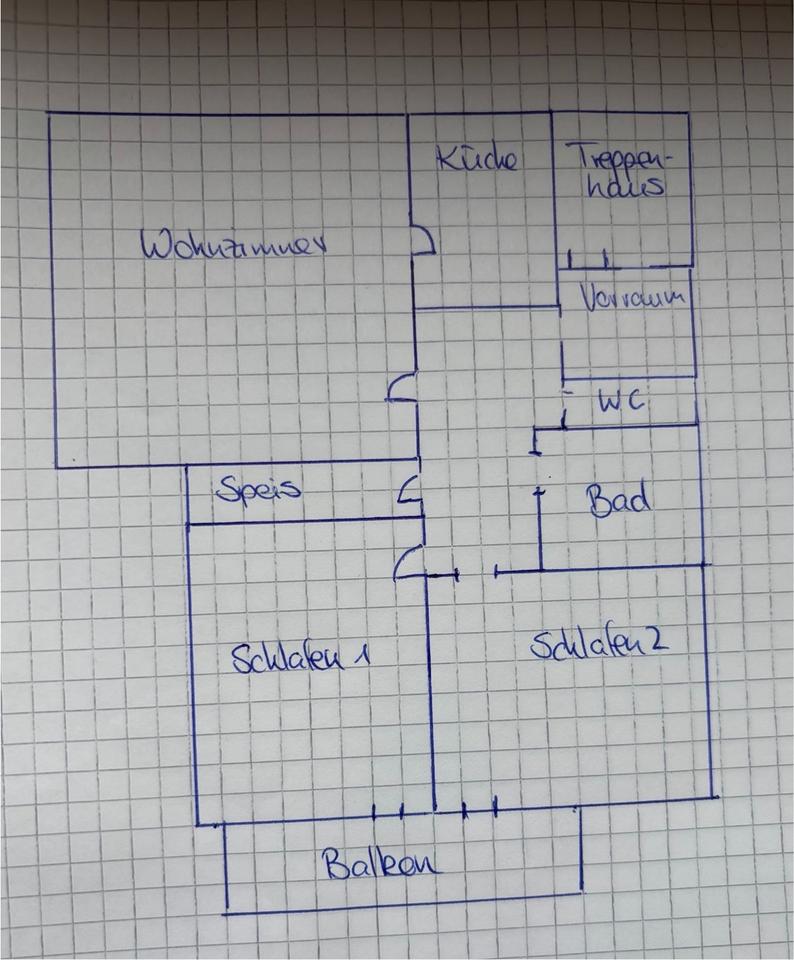 Küche
Treppen-
haus
Wohnzimmer
Vorraum
WC
Speis
Bad
Schlafen 1
Schlafen 2
Balkon